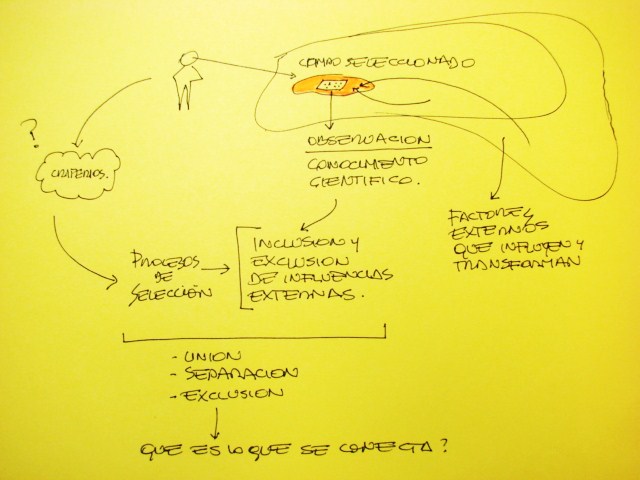 CAMPO SELECCIONADO
?
OBSERVACION
CONOCIMIENTO
CIENTIFICO.
CRITERIOS.
FACTORES
EXTERNOS
QUE INFLUYEN Y
TRANSFORMAN
PROCESOS
DE
SELECCIÓN
INCLUSION Y
EXCLUSION
DE INFLUENCIAS
EXTERNAS.
- UNION
- SEPARACION
- EXCLUSION
QUE ES LO QUE SE CONECTA?